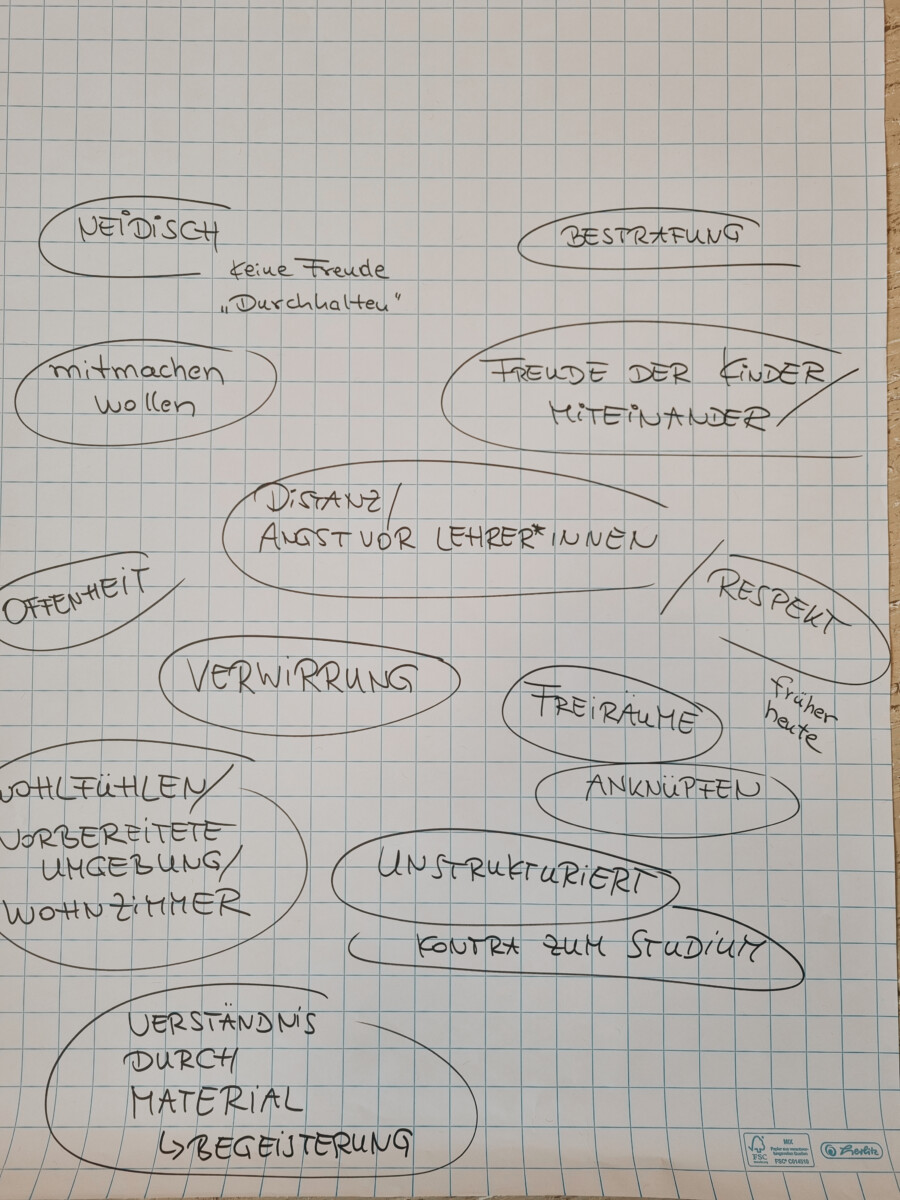 NEIDISCH
BESTRAFUNG
keine Freude
„Durchhalten"
mitmachen
wollen
FREUDE DER KINDER/
MITEINANDER
DISTANZ/
ANGST VOR LEHRER*INNEN
OFFENHEIT
/ RESPEKT
früher
heute
VERWIRRUNG
FREIRÄUME
ANKNÜPFEN
WOHLFÜHLEN/
VORBEREITETE
UMGEBUNG/
WOHNZIMMER
UNSTRUKTURIERT
KONTRA ZUM STUDIUM
VERSTÄNDNIS
DURCH
MATERIAL
↳ BEGEISTERUNG
FSC
MIX
FSC® C014010
Herlitz